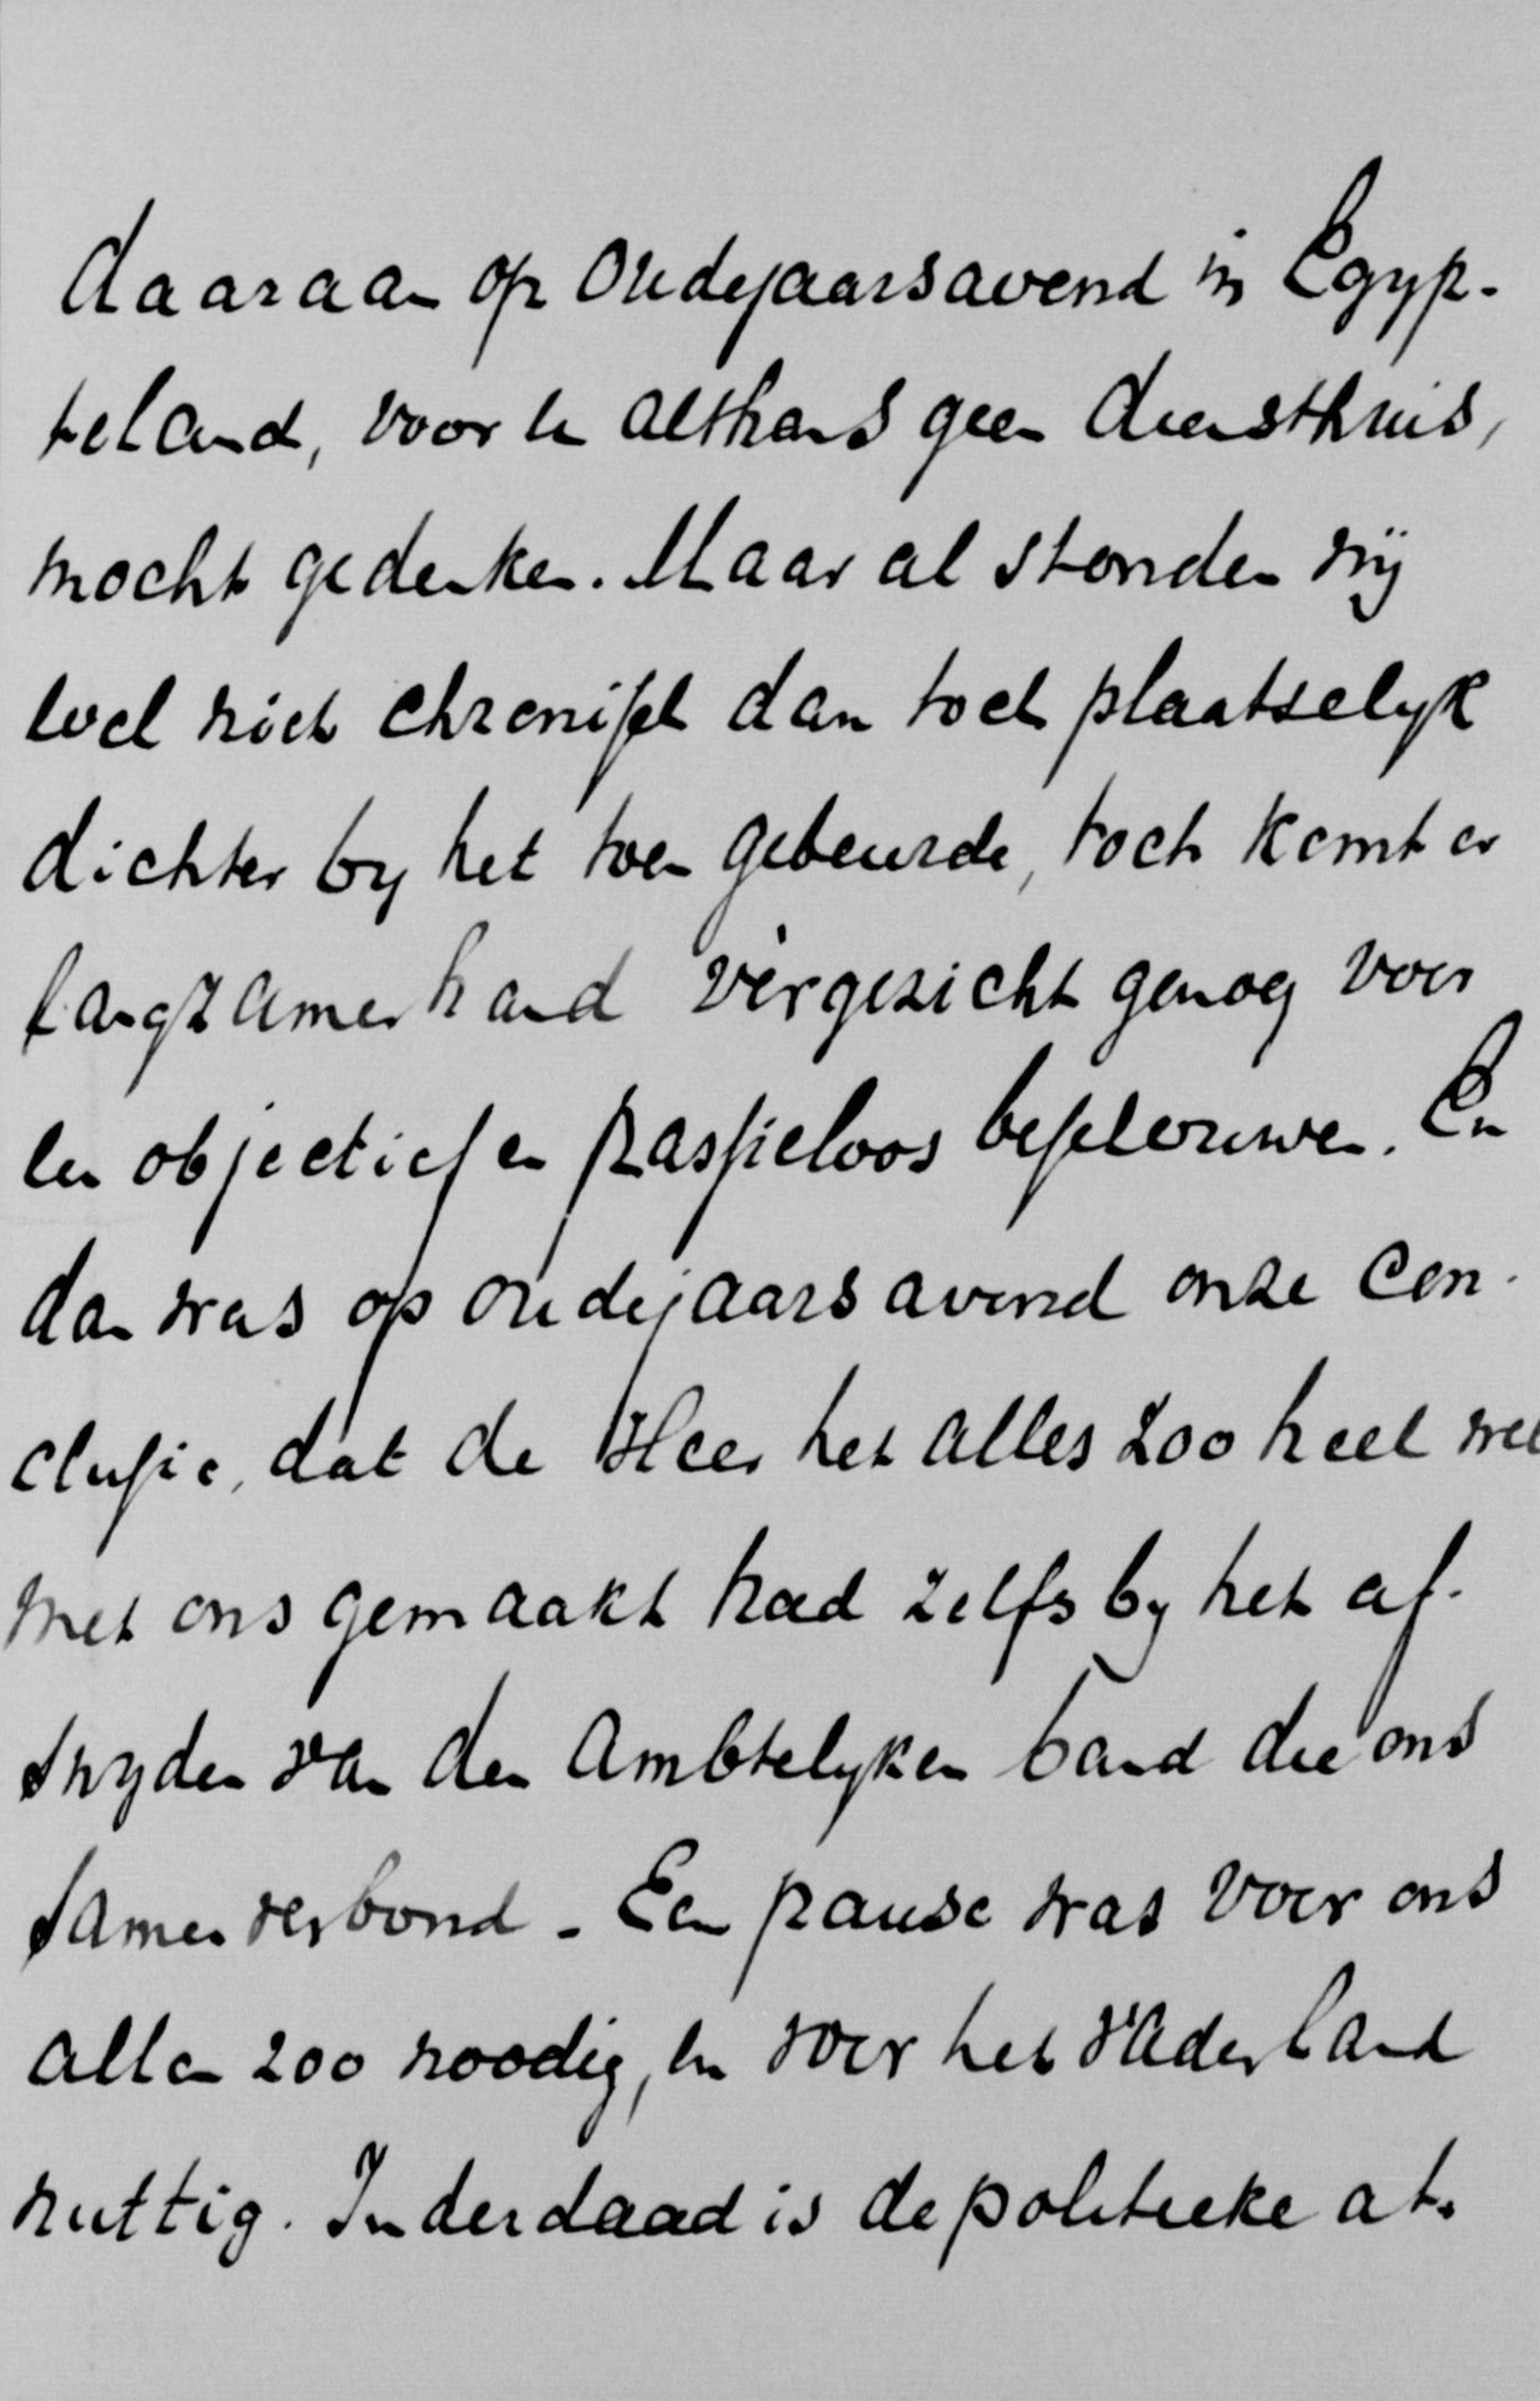 daaraan op Oudejaarsavend in Egyp-
teland, voor U althans geen diensthuis,
mocht gedenken. Maar al stonden wij
wel niet chronisch dan toch plaatselyk
dichter by het toen gebeurde, toch komt er
langzamerhand vergezicht genoeg voor
een objectief en passieloos beschouwen. En
dan was op oudejaarsavend onze con-
clusie, dat de Heer het alles zoo heel wel
met ons gemaakt had zelfs by het af-
snyden van den Ambtelyken band die ons
samenverbond - Een pause was voor ons
allen zoo noodig, en voor het vaderland
nuttig. Inderdaad is de politieke at-